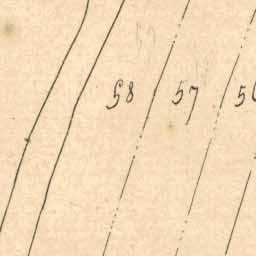 58 57